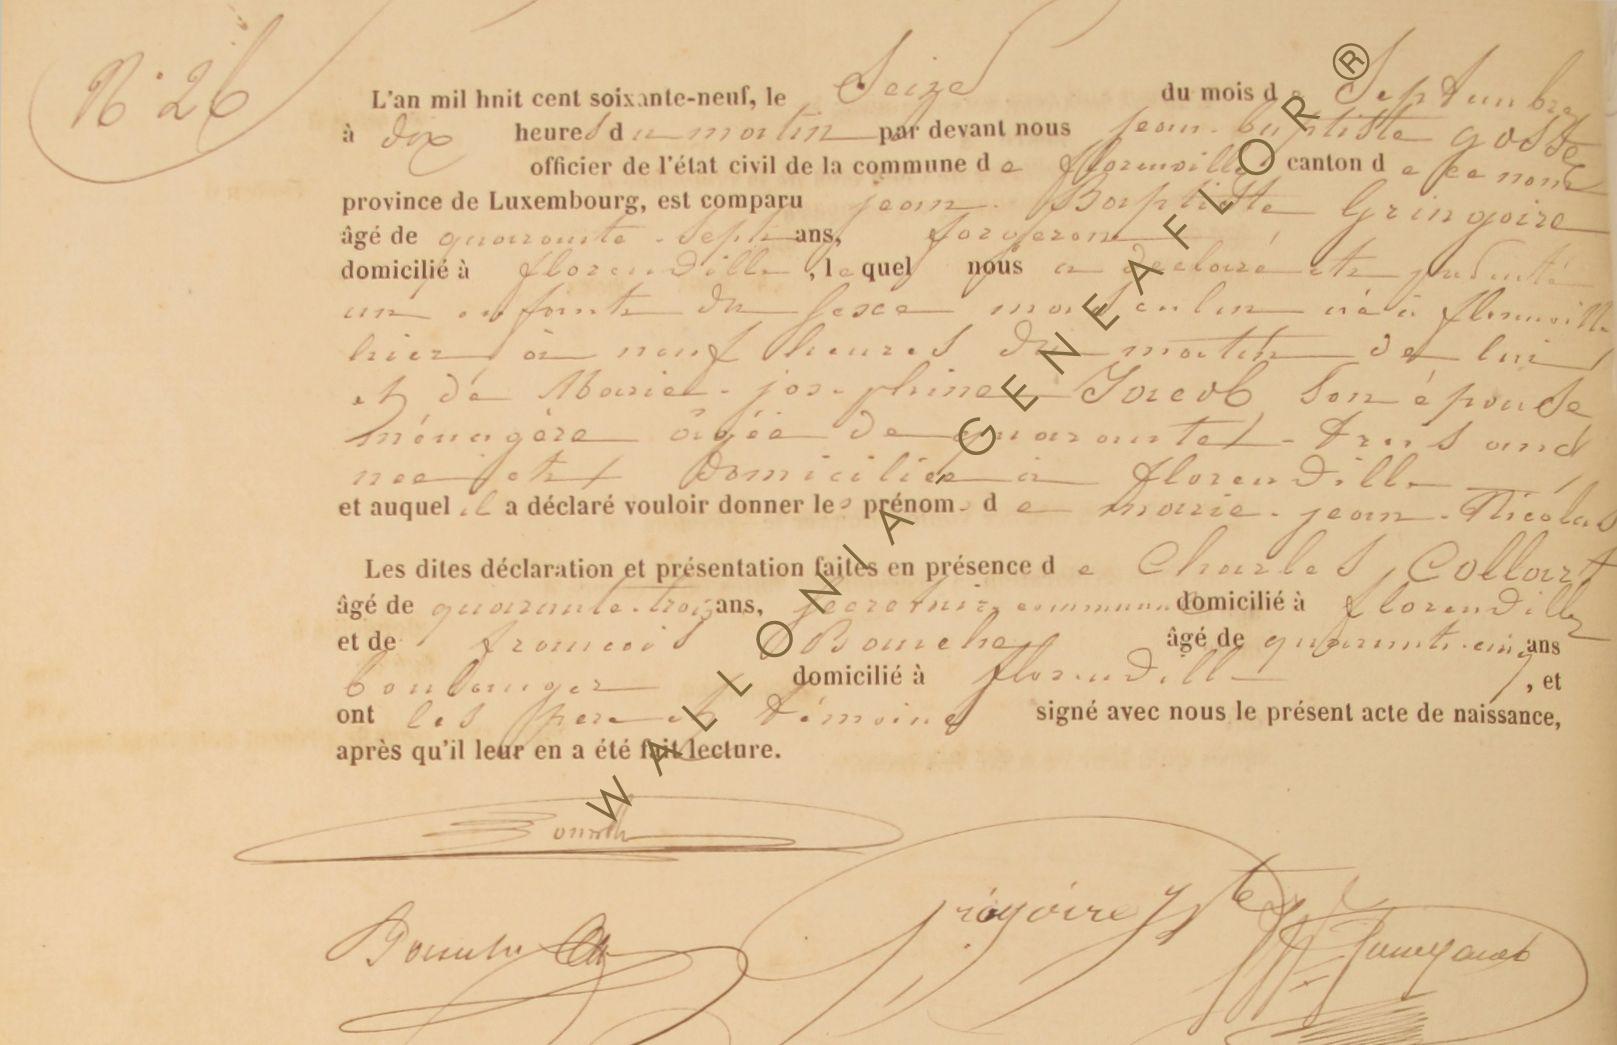 N° 26
L'an mil hnit cent soixante-neuf, le Seize du mois de Septembre
à dix heures du matin par devant nous jean-baptiste gosse
officier de l'état civil de la commune de florenville canton de ce nom
province de Luxembourg, est comparu jean-Baptiste Gringoire
âgé de quarante-sept ans, forgeron
domicilié à florenville, lequel nous a déclaré et présenté
un enfant du sexe masculin né à florenville
hier à neuf heures du matin de lui
et de Marie-josephine Jacob Son épouse
ménagère âgée de quarante-trois ans
née et domiciliée à florenville
et auquel il a déclaré vouloir donner les prénoms de marie-jean-Nicolas
Les dites déclaration et présentation faites en présence de Charles Collart
âgé de quarante-trois ans, secretaire communal domicilié à florenville
et de francois Bouche âgé de quarante-cinq ans
boulanger domicilié à florenville, et
ont les pere et témoins signé avec nous le présent acte de naissance,
après qu'il leur en a été fait lecture.
WALLONIA GENEAFLOR®